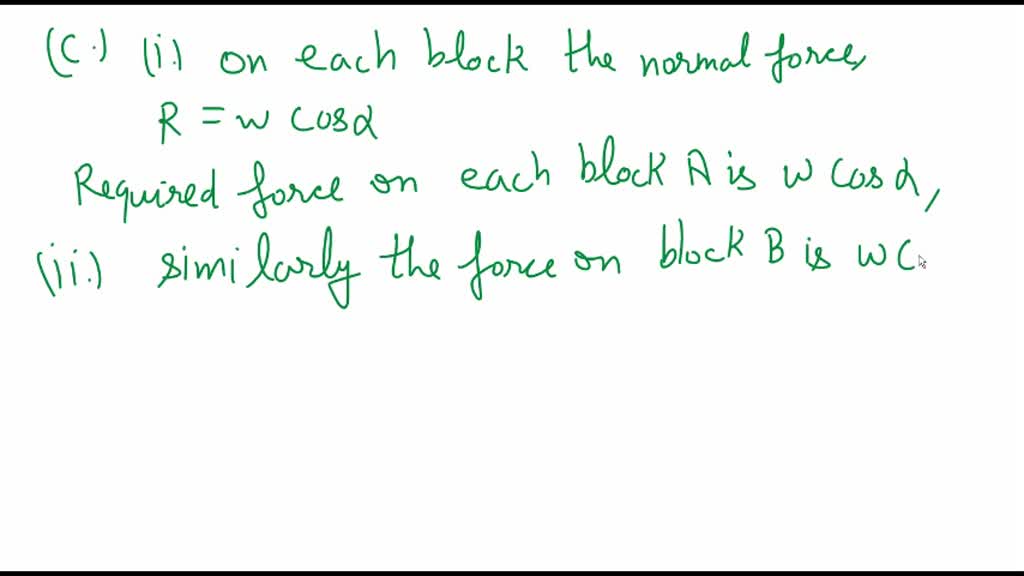 (C.) (i.) on each block the normal force,
R = w cosα
Required force on each block A is w cosα,
(ii.) similarly the force on block B is w C